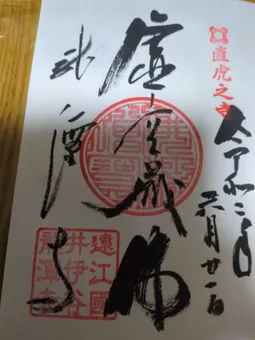 直虎之寺
令和二年
六月廿一日
虚空蔵佛
龍潭寺
遠江國
井伊谷
龍潭寺